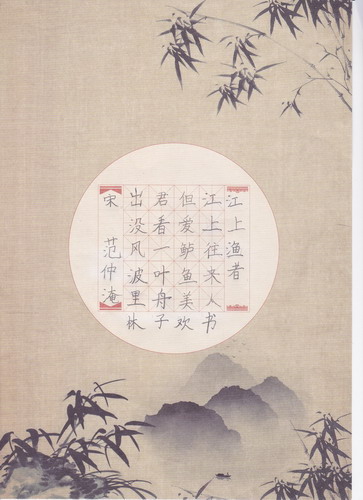 江上渔者
江上往来人
但爱鲈鱼美
君看一叶舟
出没风波里
宋 范仲淹
林子欢书